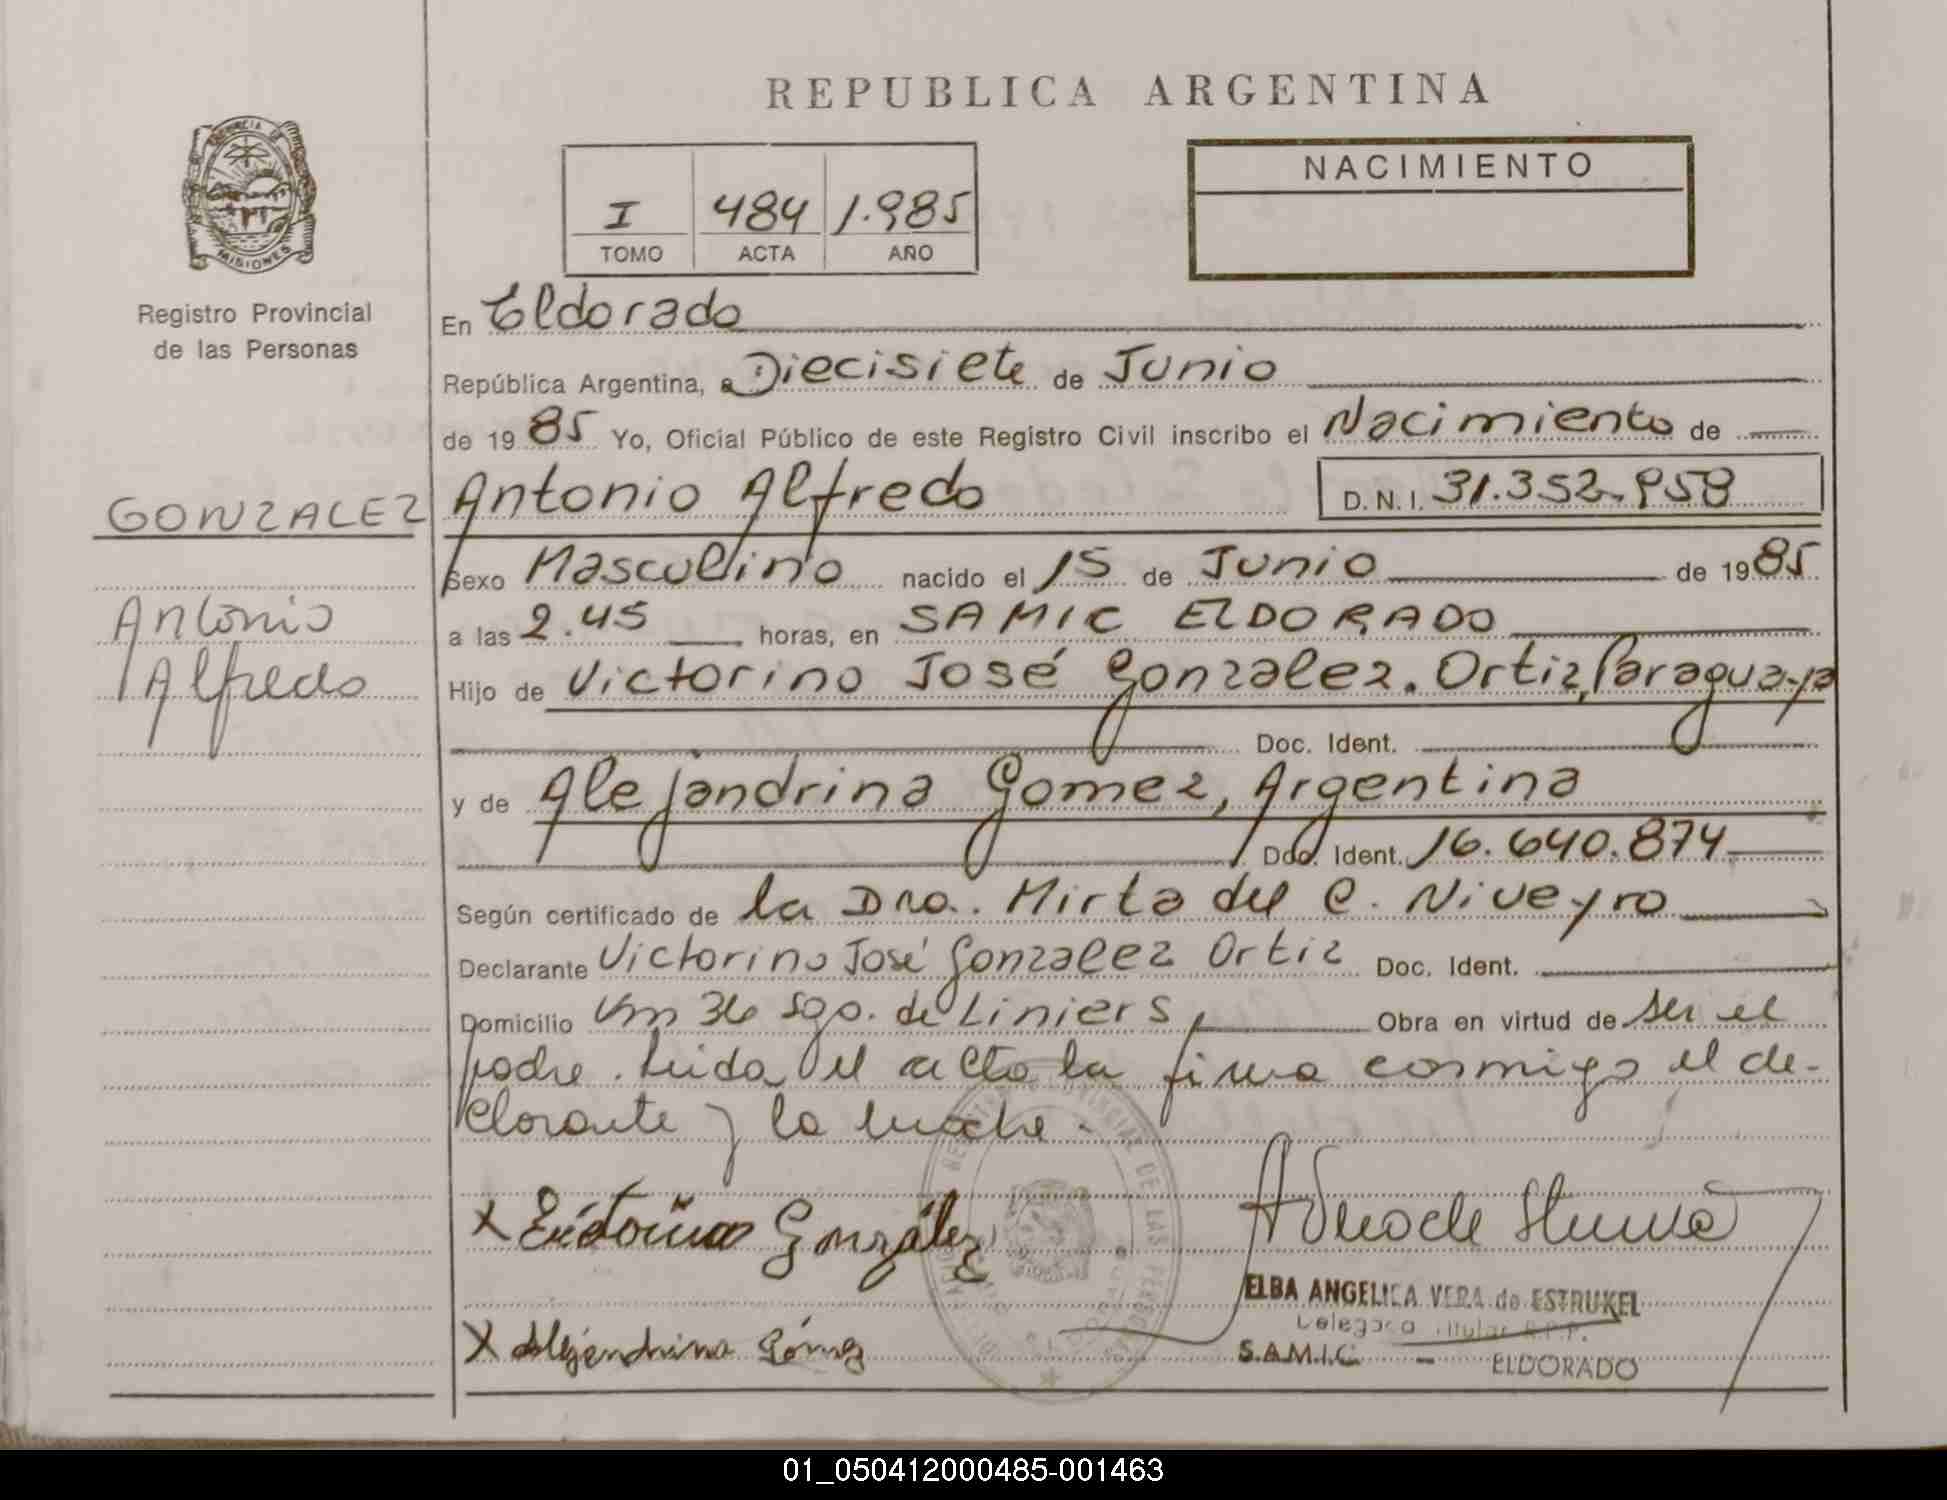 REPUBLICA ARGENTINA
PROVINCIA DE
MISIONES
Registro Provincial
de las Personas
I 484 1.985
TOMO ACTA AÑO
NACIMIENTO
En Eldorado
República Argentina, a Diecisiete de Junio
de 19 85 Yo, Oficial Público de este Registro Civil inscribo el Nacimiento de
GONZALEZ
Antonio Alfredo
D. N. I. 31.352.958
Sexo Masculino nacido el 15 de Junio de 19 85
Antonio
Alfredo
a las 2.45 horas, en SAMIC ELDORADO
Hijo de Victorino José Gonzalez. Ortiz, Paraguaya
Doc. Ident.
y de Alejandrina Gomez, Argentina
Doc. Ident. 16.640.874
Según certificado de la Dra. Mirta del C. Niveyro
Declarante Victorino José Gonzalez Ortiz Doc. Ident.
Domicilio Km 36 Sgo. de Liniers, Obra en virtud de ser el
padre. Leida el acta la firma conmigo el de-
clarante y la madre.
X Victorino González
ELBA ANGELICA VERA de ESTRUKEL
Delegada Titular R.P.P.
X Alejandrina Gómez
S.A.M.I.C. - ELDORADO
01_050412000485-001463